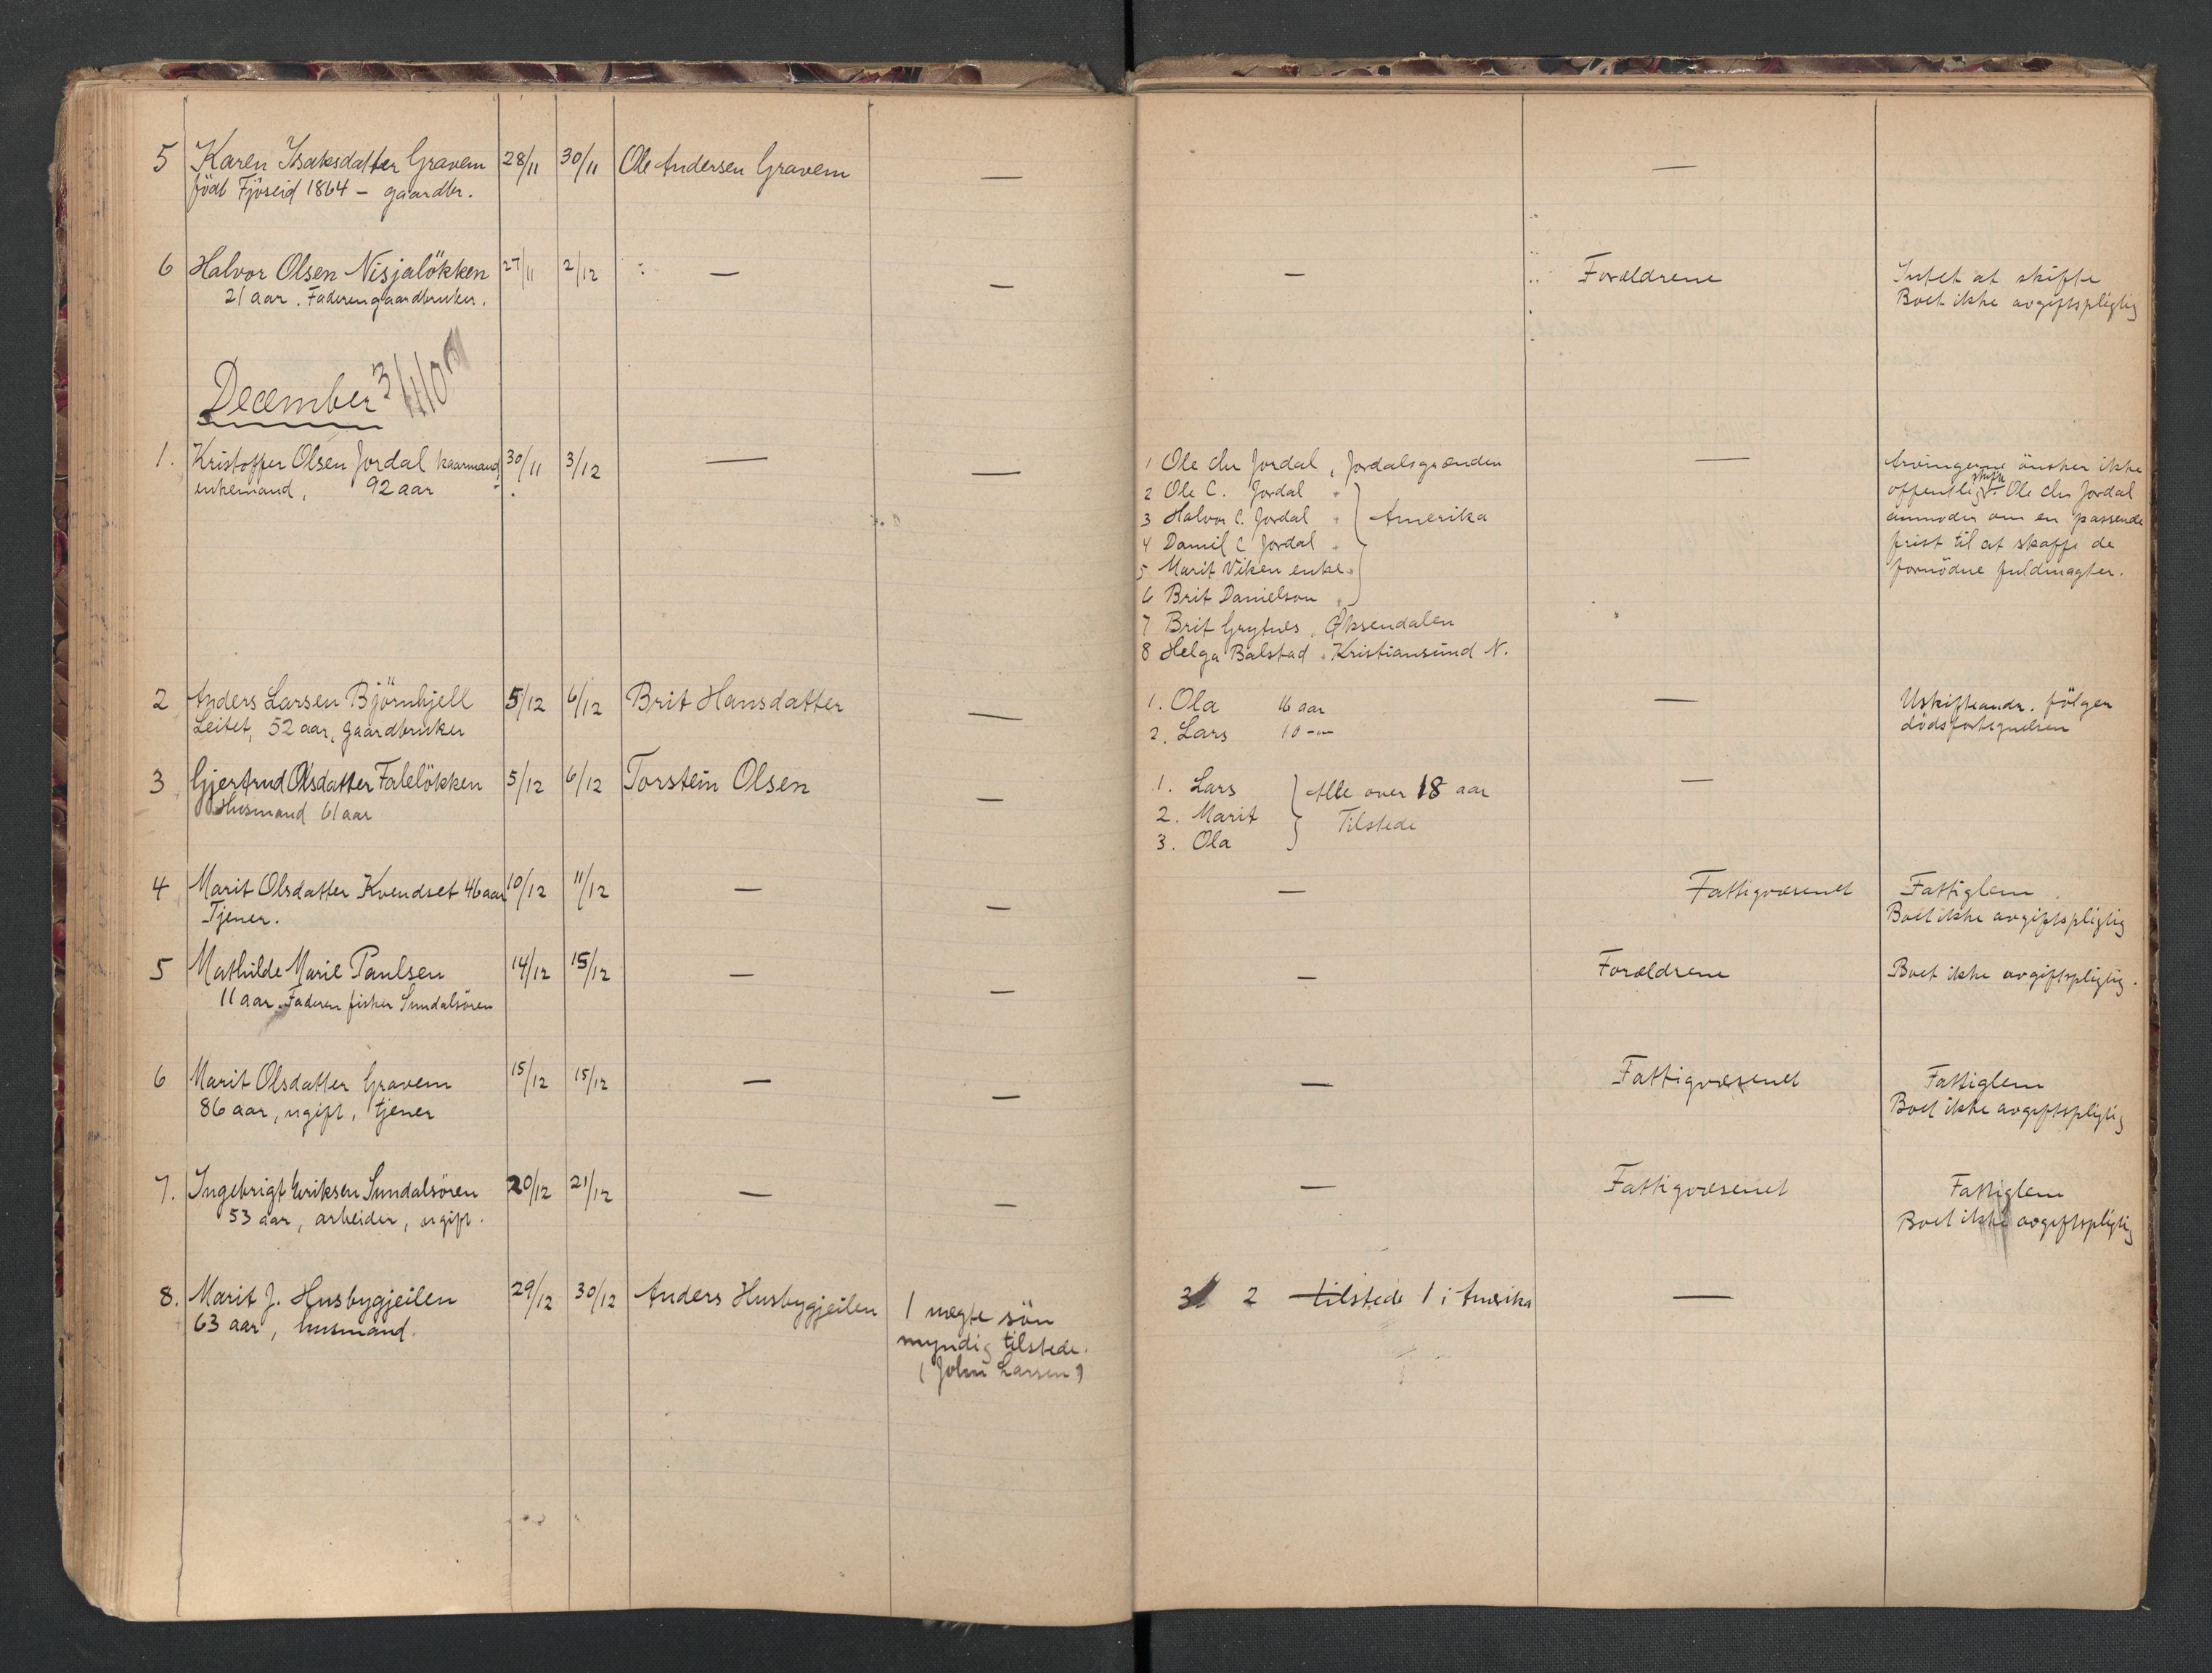 5 Karen Isaksdatter Gravem 28/11 30/11 Ole Andersen Gravem — —
født Fjöseid 1864 – gaardbr.
6 Halvor Olsen Nisjalökken 27/11 2/12 — — — Forældrene Intet at skifte
21 aar. Faderen gaardbruker. Boet ikke avgiftspligtig
December
1. Kristoffer Olsen Jordal kaarmand 30/11 3/12 — — 1 Ole Chr Jordal, Jordalsgrænden — Arvingerne önsker ikke
enkemand, 92 aar 2 Ole C. Jordal offentlig skifte. Ole Chr Jordal
3 Halvor C. Jordal Amerika anmoder om en passende
4 Daniel C Jordal frist til at skaffe de
5 Marit Viken enke fornödne fuldmagter.
6 Brit Danielson
7 Brit Grytnes, Öksendalen
8 Helga Balstad, Kristiansund N.
2 Anders Larsen Björnhjell 5/12 6/12 Brit Hansdatter — 1. Ola 16 aar — Uskifteandr. fölger
Leitet, 52 aar, gaardbruker 2. Lars 10 –"– dödsfortegnelsen
3 Gjertrud Olsdatter Falelökken 5/12 6/12 Torstein Olsen — 1. Lars Alle over 18 aar —
Husmand 61 aar 2. Marit Tilstede
3. Ola
4 Marit Olsdatter Kvendset 46 aar 10/12 11/12 — — — Fattigvæsenet Fattiglem
Tjener. Boet ikke avgiftspligtig
5 Mathilde Marie Paulsen 14/12 15/12 — — — Forældrene Boet ikke avgiftspligtig.
11 aar. Faderen fisker Sundalsören
6 Marit Olsdatter Gravem 15/12 15/12 — — — Fattigvæsenet Fattiglem
86 aar, ugift, tjener Boet ikke avgiftspligtig
7. Ingebrigt Eriksen Sundalsören 20/12 21/12 — — — Fattigvæsenet Fattiglem
53 aar, arbeider, ugift. Boet ikke avgiftspligtig
8. Marit J. Husbygjeilen 29/12 30/12 Anders Husbygjeilen 1 uægte sön 3 2 tilstede 1 i Amerika —
63 aar, husmand. myndig tilstede.
(John Larsen)